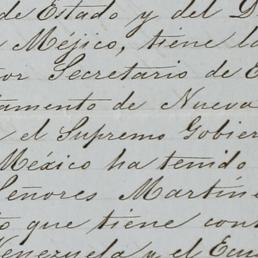 de Estado y del D
Méjico, tiene la
or Secretario de E
amento de Nueva
el Supremo Gobier
México ha tenido
Señores Martín
que tiene con
Venezuela y el Ecu